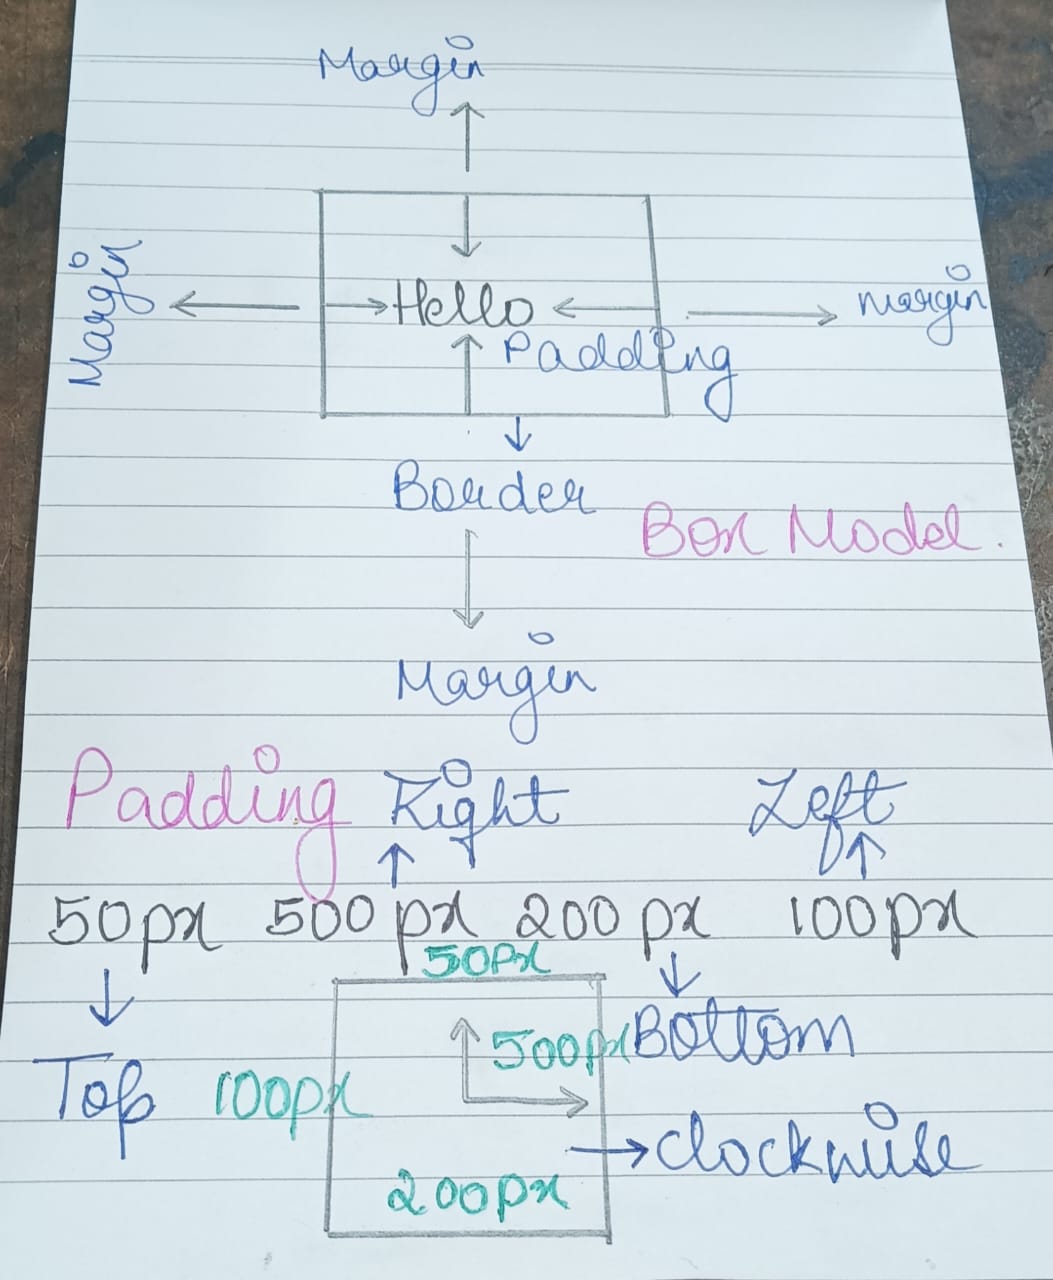 Margin
Margin
Hello
margin
Padding
Border
Box Model.
Margin
Padding Right Left
50px 500px 200px 100px
50Px
500px Bottom
Top 100px
clockwise
200px